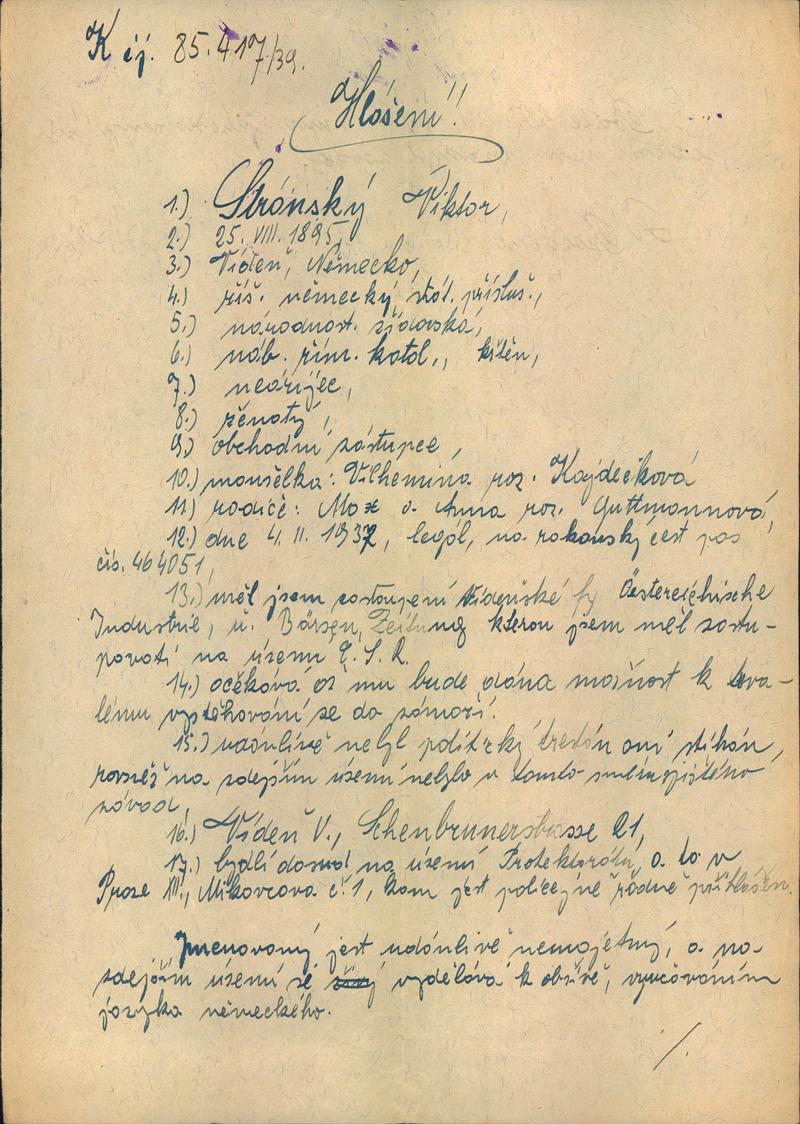 K čj. 85.417/39.
Hlášení!
1.) Stránský Viktor,
2.) 25. VIII. 1895,
3.) Vídeň, Německo,
4.) říš. německý stát. přísluš.,
5.) národnost. židovská,
6.) náb. řím. katol., křtěn,
7.) neárijec,
8.) ženatý,
9.) obchodní zástupce,
10.) manželka: Vilhemina roz. Kajdečková
11.) rodiče: Max a Anna roz. Guttmannová,
12.) dne 4. II. 1937, legál, na rakouský cest pas
čís. 464051,
13.) měl jsem zastoupení vídeňské fy Östereichische
Industrie, u. Börsen, Zeitung kterou jsem měl zastu-
povati na území Č.S.R.
14.) očekává až mu bude dána možnost k trva-
lému vystěhování se do zámoří.
15.) údánlivě nebyl politický trestán ani stíhán,
rovněž na zdejším území nebylo v tomto směru zjištěno
závad,
16.) Vídeň V., Schenbrunerstrasse 21,
17.) bydlí dosud na území Protektorátu, a to v
Praze VII., Mikovcova č. 1, kam jest policejně řádně přihlášen.
Jmenovaný jest údánlivě nemajetný, a na
zdejším území se vydělává k obživě, vyučováním
jazyka německého.
/.